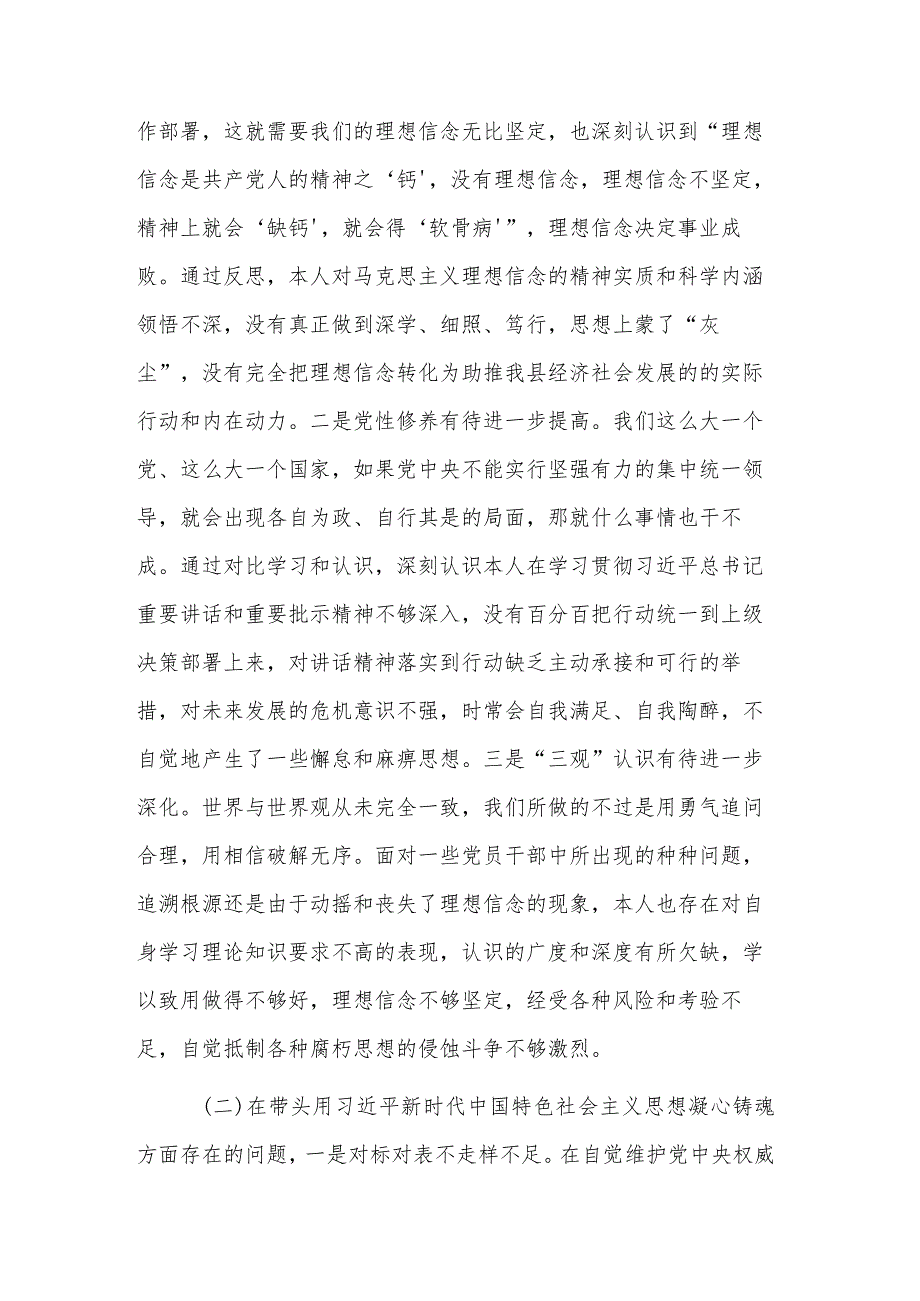 作部署，这就需要我们的理想信念无比坚定，也深刻认识到“理想
信念是共产党人的精神之‘钙'，没有理想信念，理想信念不坚定，
精神上就会‘缺钙'，就会得‘软骨病'”，理想信念决定事业成
败。通过反思，本人对马克思主义理想信念的精神实质和科学内涵
领悟不深，没有真正做到深学、细照、笃行，思想上蒙了“灰
尘”，没有完全把理想信念转化为助推我县经济社会发展的的实际
行动和内在动力。二是党性修养有待进一步提高。我们这么大一个
党、这么大一个国家，如果党中央不能实行坚强有力的集中统一领
导，就会出现各自为政、自行其是的局面，那就什么事情也干不
成。通过对比学习和认识，深刻认识本人在学习贯彻习近平总书记
重要讲话和重要批示精神不够深入，没有百分百把行动统一到上级
决策部署上来，对讲话精神落实到行动缺乏主动承接和可行的举
措，对未来发展的危机意识不强，时常会自我满足、自我陶醉，不
自觉地产生了一些懈怠和麻痹思想。三是“三观”认识有待进一步
深化。世界与世界观从未完全一致，我们所做的不过是用勇气追问
合理，用相信破解无序。面对一些党员干部中所出现的种种问题，
追溯根源还是由于动摇和丧失了理想信念的现象，本人也存在对自
身学习理论知识要求不高的表现，认识的广度和深度有所欠缺，学
以致用做得不够好，理想信念不够坚定，经受各种风险和考验不
足，自觉抵制各种腐朽思想的侵蚀斗争不够激烈。
(二)在带头用习近平新时代中国特色社会主义思想凝心铸魂
方面存在的问题，一是对标对表不走样不足。在自觉维护党中央权威